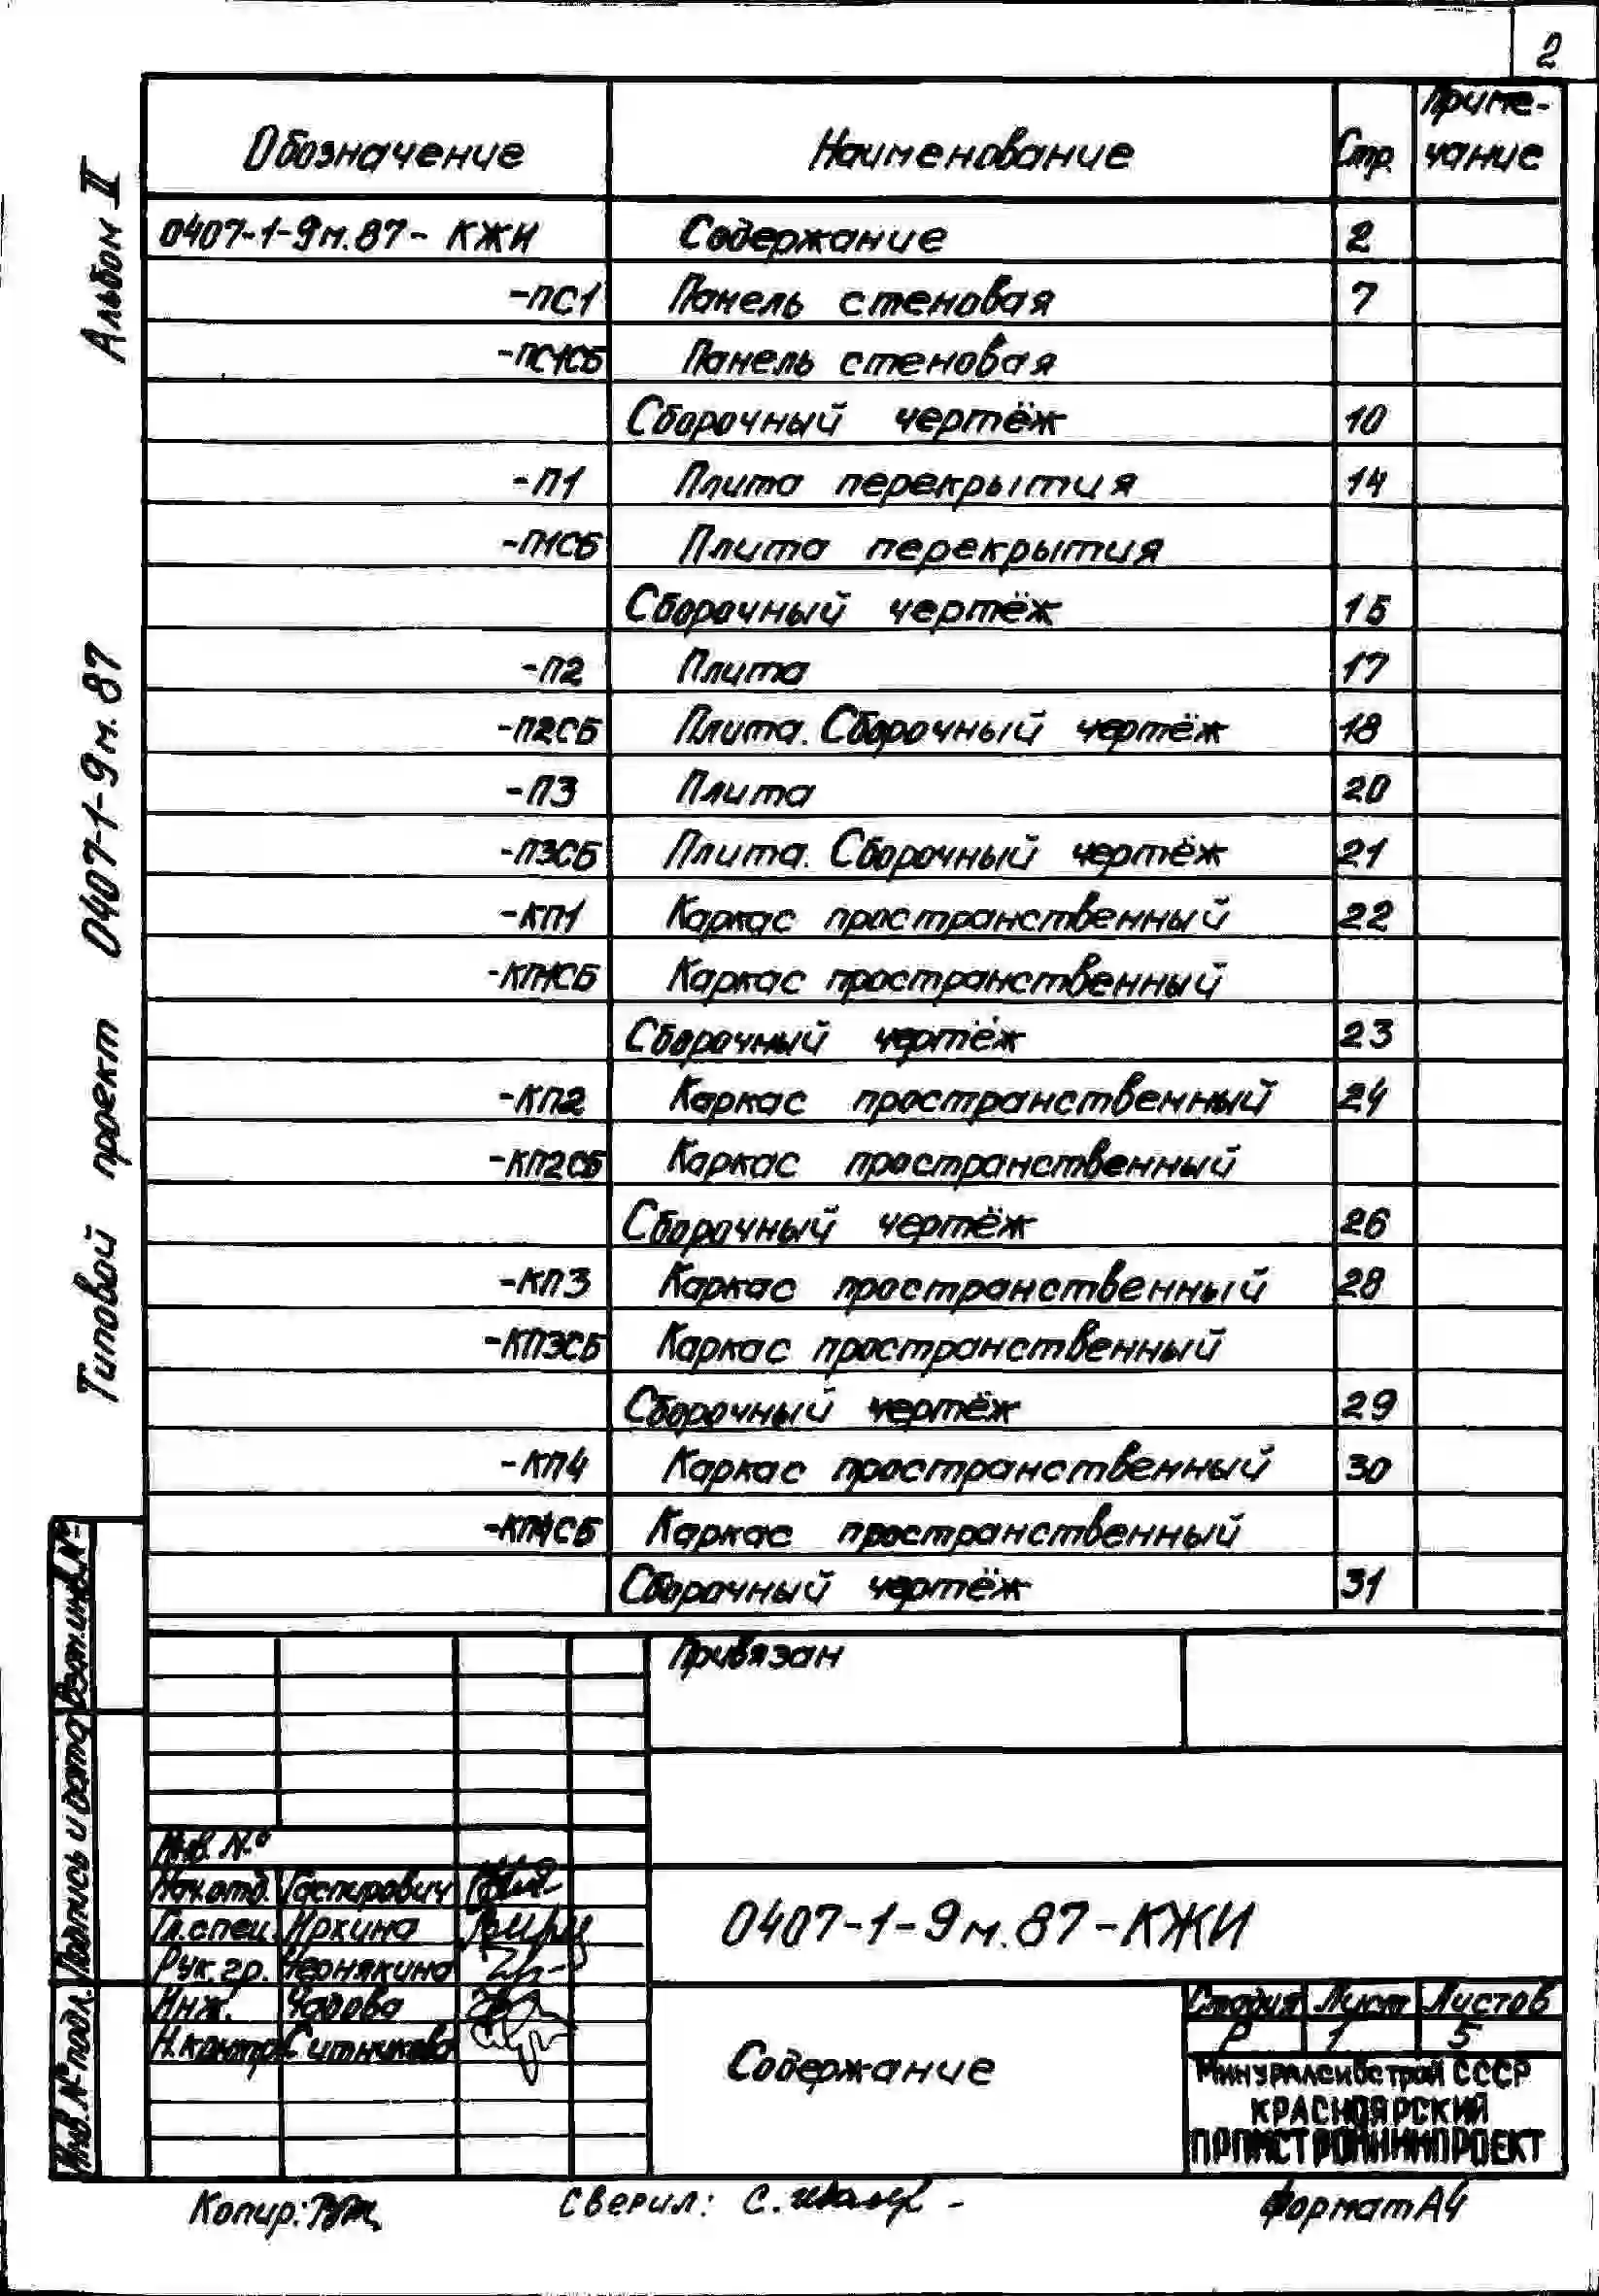 2
Альбом II
Типовой проект 0407-1-9м.87
Обозначение Наименование Стр. Приме-
чание
0407-1-9м.87- КЖИ Содержание 2
-ПС1 Панель стеновая 7
-ПС1СБ Панель стеновая
Сборочный чертёж 10
-П1 Плита перекрытия 14
-П1СБ Плита перекрытия
Сборочный чертёж 15
-П2 Плита 17
-П2СБ Плита. Сборочный чертёж 18
-П3 Плита 20
-П3СБ Плита. Сборочный чертёж 21
-КП1 Каркас пространственный 22
-КП1СБ Каркас пространственный
Сборочный чертёж 23
-КП2 Каркас пространственный 24
-КП2СБ Каркас пространственный
Сборочный чертёж 26
-КП3 Каркас пространственный 28
-КП3СБ Каркас пространственный
Сборочный чертёж 29
-КП4 Каркас пространственный 30
-КП4СБ Каркас пространственный
Сборочный чертёж 31
Взам.инв.№
Подпись и дата
Инв.№ подл.
Привязан
Инв.№
Нач.отд. Гаспирович
Гл.спец. Иркина
Рук.гр. Чернякина
Инж.
Н.контр. Ситникова
0407-1-9м.87-КЖИ
Содержание
Стадия Лист Листов
Р 1 5
Минуралсибстрой СССР
КРАСНОЯРСКИЙ
ПРОМСТРОЙНИИПРОЕКТ
Копир:
Сверил: С.
Формат А4